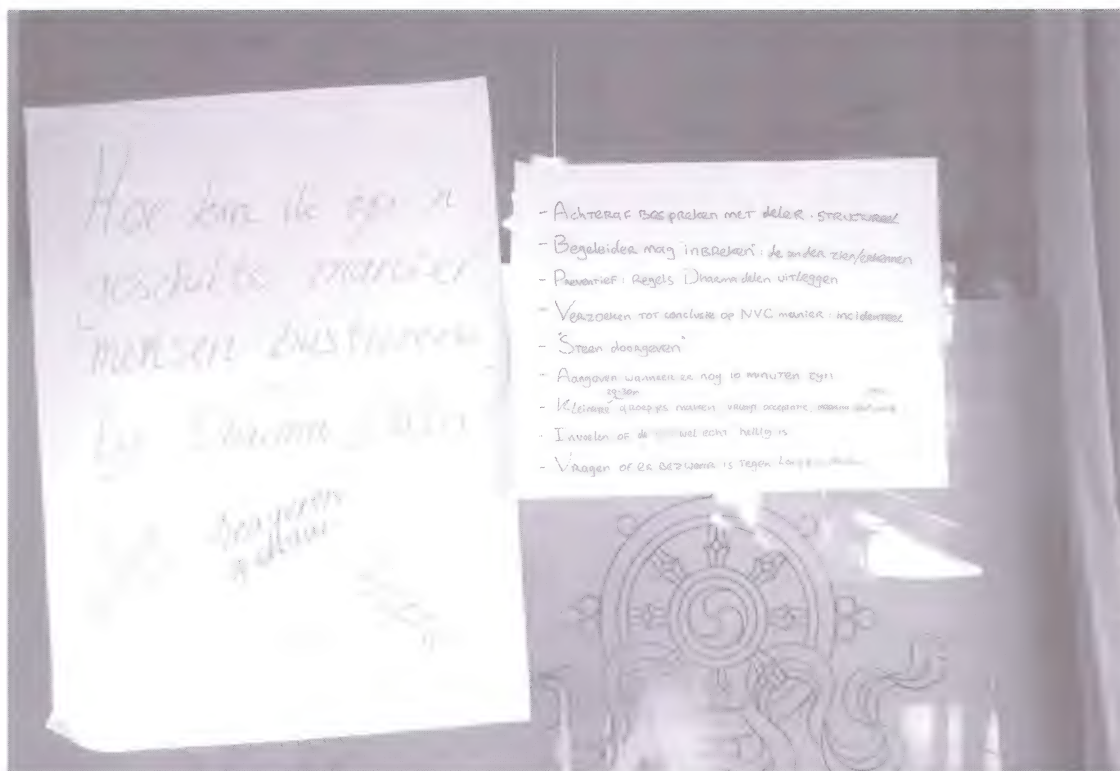 Hoe kan ik op 'n
geschikte manier
mensen bijsturen
bij Dharma delen
- Achteraf bespreken met deler · structureel
- Begeleider mag inbreken : de ander zien/erkennen
- Preventief : Regels Dharma delen uitleggen
- Verzoeken tot conclusie op NVC manier · incidenteel
- "Steen doorgeven"
- Aangeven wanneer er nog 10 minuten zijn
- Kleinere groepjes maken acceptatie
- Invoelen of de wel echt heilig is
- Vragen of er bezwaar is tegen